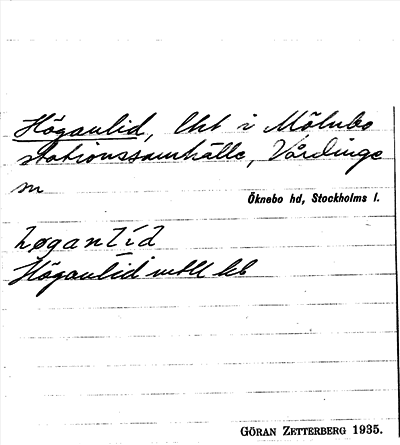 Höganlid, lht i Mölnbo
stationssamhälle, Vårdinge
sn
Öknebo hd, Stockholms l.
høganlid
Höganlid
GÖRAN ZETTERBERG 1935.